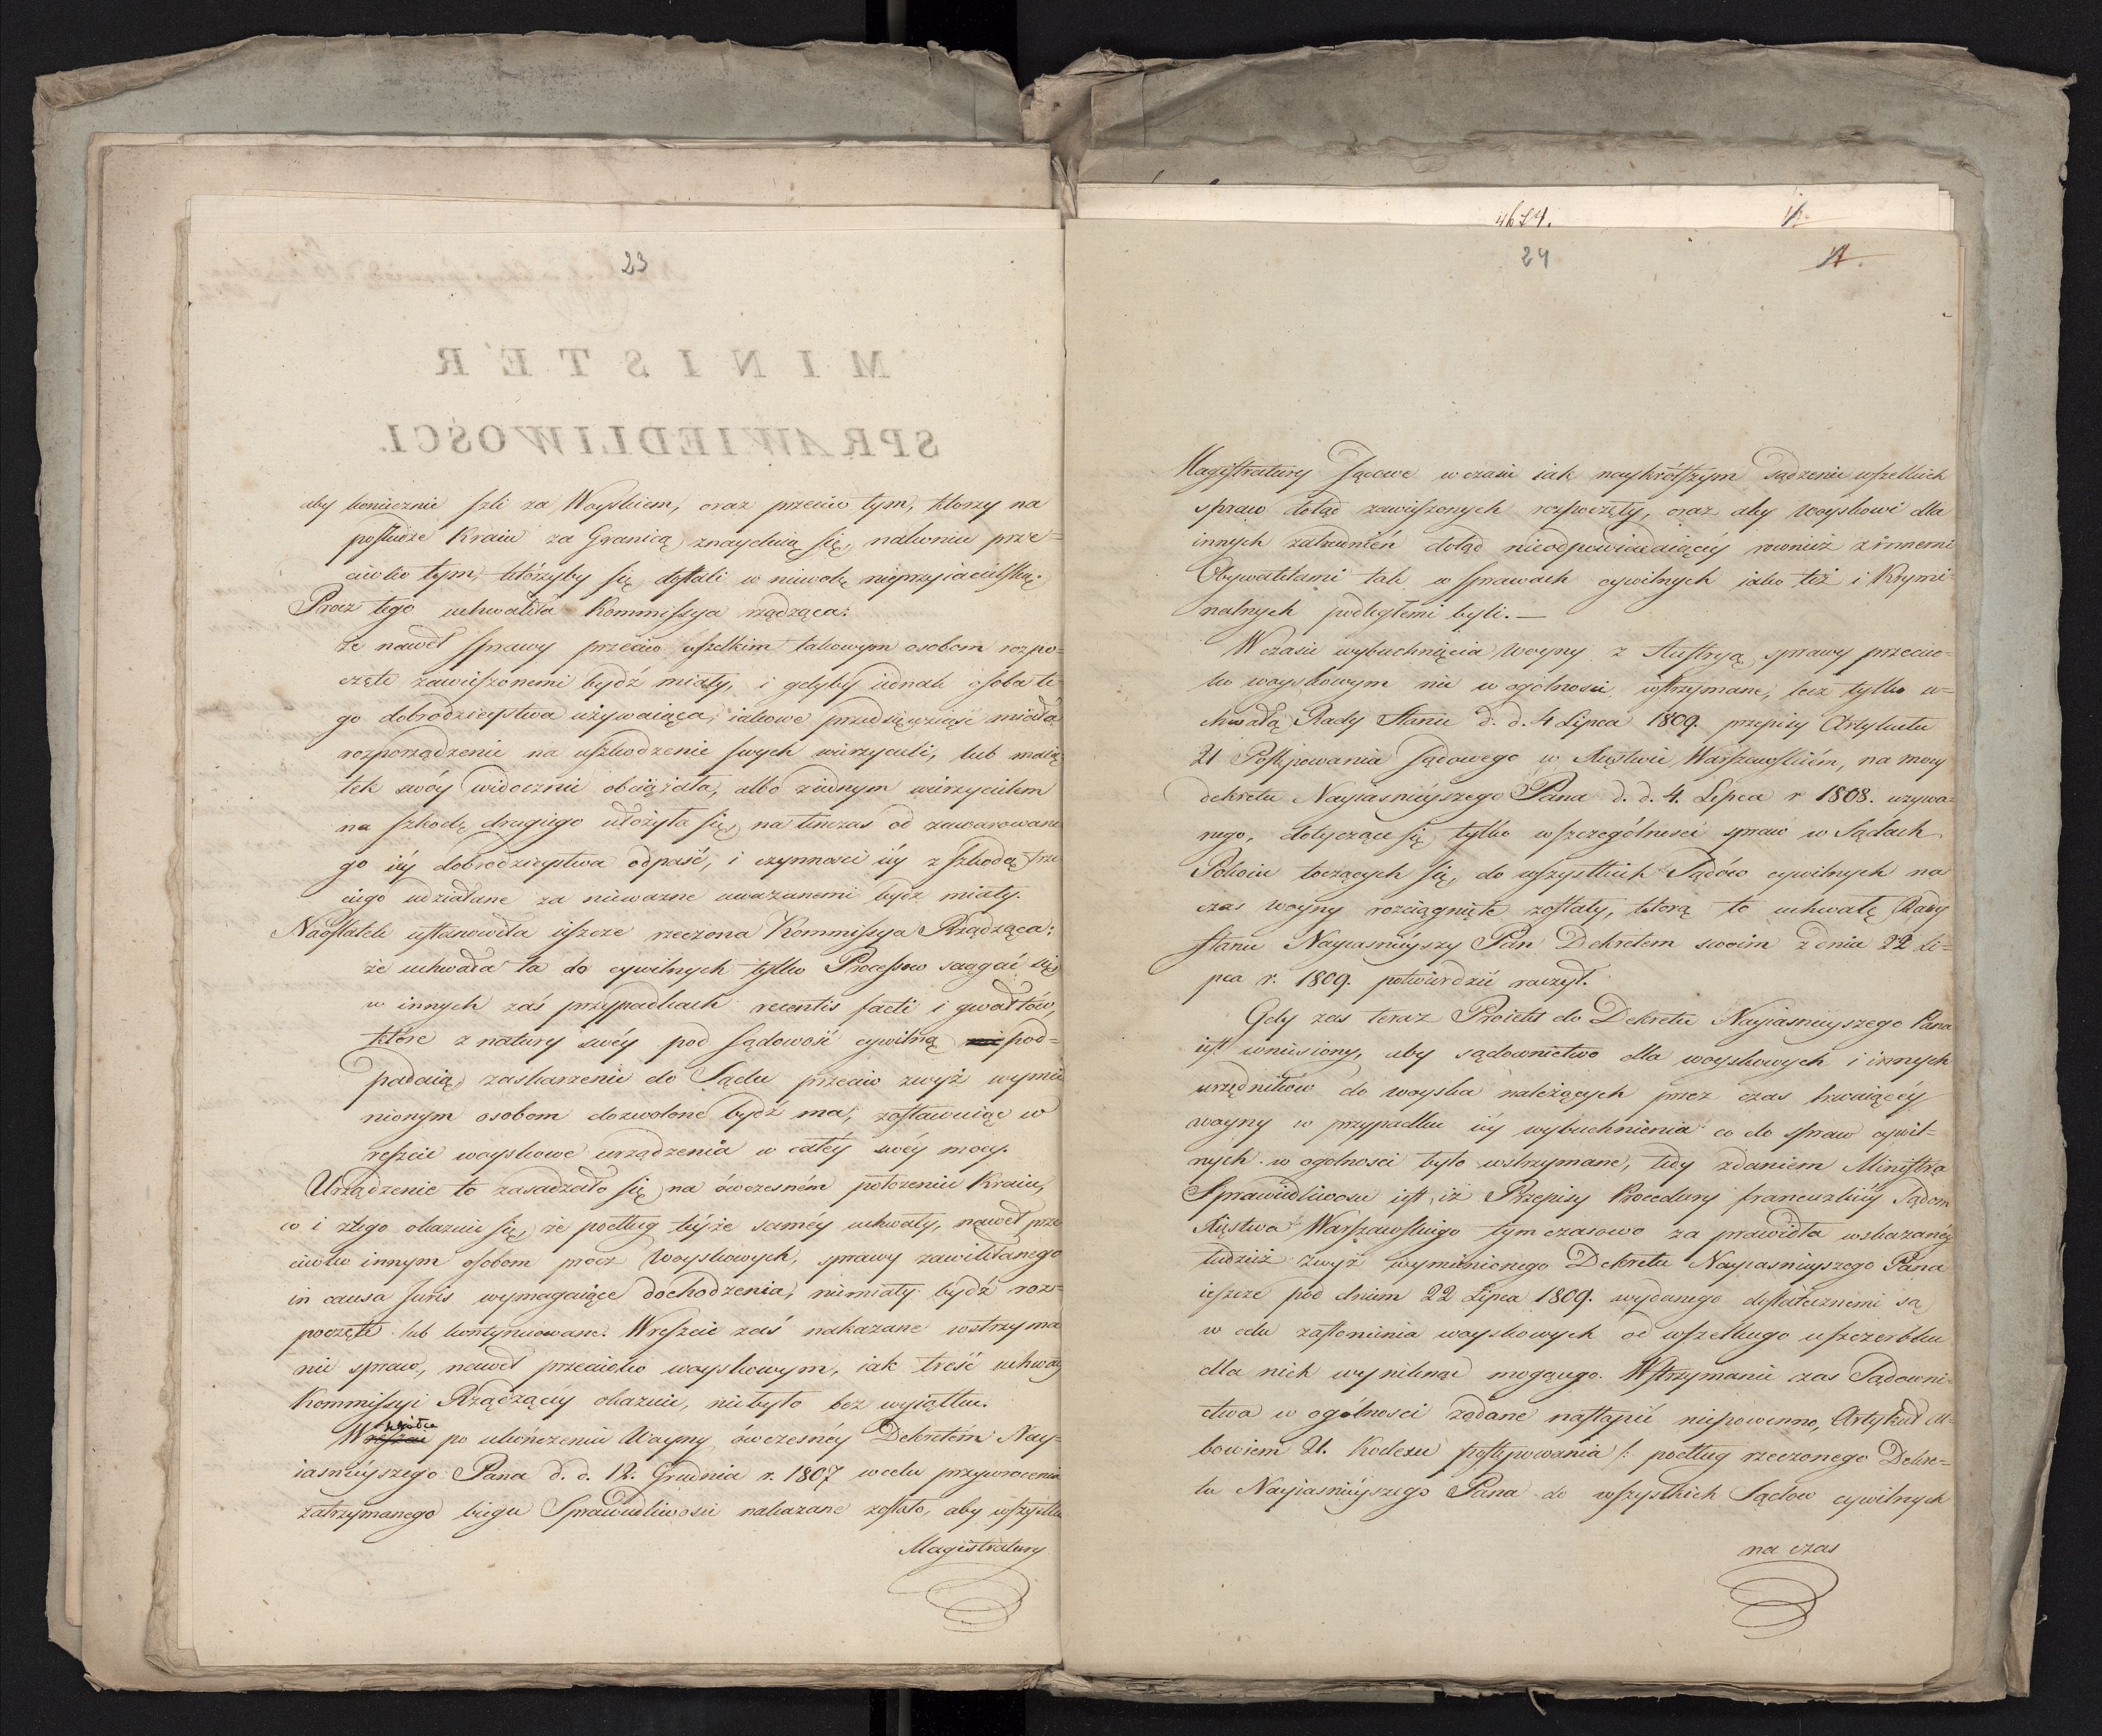 23
aby koniecznie szli za Woyskiem, oraz przeciw tym, ktorzy na
posłudze Kraiu za Granicą znayduią się, nakoniec prze=
ciwko tym, którzyby się dostali w niewolę nieprzyiacielską.
Procz tego uchwaliła Kommissya rządząca:
że nawet sprawy przeciw wszelkim takowym osobom rozpo=
częte zawieszonemi bydź miały, i gdyby iednak osoba te=
go dobrodzieystwa używaiąca, iakowe przedsięwziąść miała
rozporządzenie na uszkodzenie swych wierzycieli, lub maią
tek swóy widocznie obciążała, albo z iednym wierzycielem
na szkodę drugiego ułożyła się, na tenczas od zawarowane
go iéy dobrodzieystwa odpaść, i czynnosci iéy z szkodą trze
ciego udziałane za nieważne uważanemi bydz miały.
Naostatek ustanowiła ieszcze rzeczona Kommissya Rządząca:
że uchwała ta do cywilnych tylko Processow sciągać się
w innych zaś przypadkach recentis facti i gwałtów,
które z natury swéy pod sądowość cywilną pod=
padaią, zaskarzenie do Sądu przeciw zwyż wymie
nionym osobom dozwolone bydź ma, zostawuiąc w
reszcie woyskowe urządzenia w całéy swéy mocy.
Urządzenie to zasadzało się na ówczesném położeniu Kraiu,
co i ztego okazuie się, że podług téyże saméy uchwały, nawet prze
ciwko innym osobom procz Woyskowych, sprawy zawikłanego
in causa Juris wymagaiące dochodzenia, niemiały bydź roz=
poczęte lub kontynuowane. Wreszcie zaś nakazane wstrzyma
nie spraw, nawet przeciwko woyskowym, iak treść uchwały
Kommissyi Rządzącéy okazuie, niebyło bez wyiątku.
Wkrótce po ukończeniu Woyny ówczesnéy Dekretém Nay=
iasnieyszego Pana d. d. 12. Grudnia r. 1807 wcelu przywrocenia
zatrzymanego biegu Sprawiedliwosci nakazane zostało, aby wszystkie
Magistratury
4674.
24
Magistratury Sądowe w czasie iak naykrótszym sądzenie wszelkich
spraw dotąd zawieszonych rozpoczęły, oraz aby Woyskowi dla
innych zatrudnień dotąd nieodpowiadaiący rownież z innemi
Obywatelami tak w sprawach cywilnych iako też i Krymi=
nalnych podległemi byli. —
W czasie wybuchnięcia Woyny z Austryą, sprawy przeciw=
ko woyskowym nie w ogólnosci wstrzymane, lecz tylko u=
chwałą Rady Stanu d. d. 4 Lipca 1809. przepisy Artykułu
21 Postępowania sądowego w Xięstwie Warszawskiém, na mocy
dekretu Nayiasnieyszego Pana d. d. 4. Lipca r 1808. uzywa=
nego, dotyczące się tylko wszczególnosci spraw w Sądach
Pokoiu toczących się, do wszystkich Sądów cywilnych na
czas woyny rozciągnięte zostały, którą to uchwałę Rady
Stanu Nayiasnieyszy Pan Dekretem swoim z dnia 22 Li=
pca r. 1809. potwierdzić raczył.
Gdy zas teraz Proiekt do Dekretu Nayiasnieyszego Pana
iest wniesiony, aby sądownictwo dla woyskowych i innych
urzędników do woyska należących przez czas trwaiącéy
woyny w przypadku iéy wybuchnienia co do spraw cywil=
nych w ogolnosci było wstrzymane, tedy zdaniem Ministra
Sprawiedliwosci iest, iż Przepisy Procedury francuzkiéy Sądom
Xięstwa Warszawskiego tymczasowo za prawidła wskazanéy
tudzież zwyż wymienionego Dekretu Nayiasnieyszego Pana
ieszcze pod dniem 22 Lipca 1809. wydanego dostatecznemi są
w celu zasłonienia woyskowych od wszelkiego uszczerbku
dla nich wyniknąć mogącego. Wstrzymanie zas Sądowni=
ctwa w ogólnosci żądane nastąpić niepowinno, Artykuł al=
bowiem 21. Kodexu postępowania /: podług rzeczonego Dekre=
tu Nayiasnieyszego Pana do wszystkich Sądow cywilnych
na czas